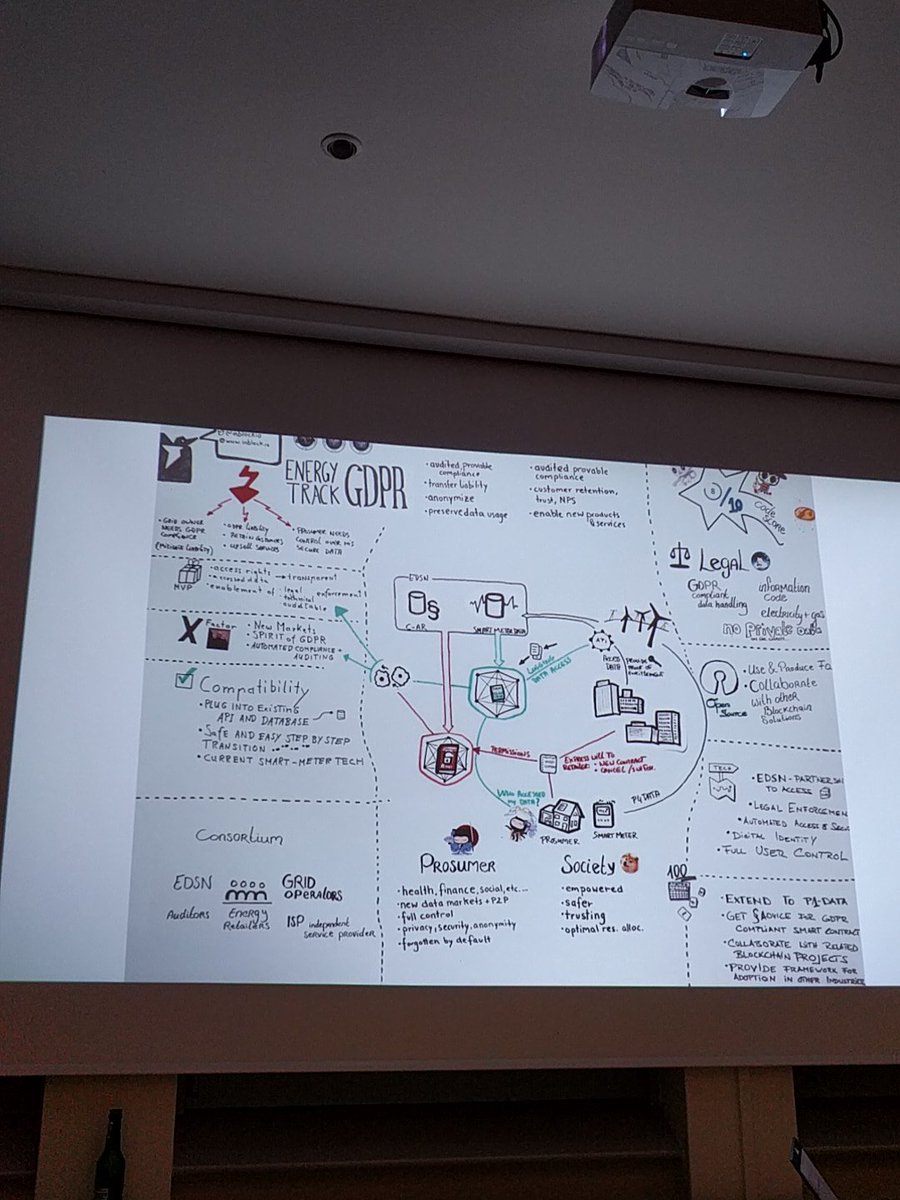 @inblockio
@www.inblock.io
ENERGY
TRACK
GDPR
• audited, provable
compliance
• transfer liability
• anonymize
• preserve data usage
• audited provable
compliance
• customer retention,
trust, NPS
• enable new products
& services
8/10
Code
Score
• GRID OWNER
NEEDS GDPR
COMPLIANCE
(Mitigate Liability)
• GDPR liability
• upsell services
• PROSUMER NEEDS
CONTROL OVER HIS
SECURE DATA
MVP
• access rights → transparent
• accessed data
• enablement of
• legal
enforcement
technical
auditable
X Factor
• New Markets
• SPIRIT of GDPR
• AUTOMATED COMPLIANCE +
AUDITING
Compatibility
• PLUG INTO EXISTING
API AND DATABASE
• Safe AND EASY STEP BY STEP
TRANSITION
• CURRENT SMART-METER TECH
Consortium
EDSN
Auditors
Energy
Retailers
GRID
OPERATORS
ISP independent
service provider
EDSN
C-AR
SMART METER DATA
LOGGING
DATA ACCESS
API
ACCESS
DATA
PERMISSIONS
EXPRESS WILL TO
RETAILER:
• NEW CONTRACT
• CANCEL / SWITCH
WHO ACCESSED
MY DATA?
PROSUMER
SMART METER
P4 DATA
Prosumer
• health, finance, social, etc...
• new data markets + P2P
• full control
• privacy, security, anonymity
• forgotten by default
Society
• empowered
• safer
• trusting
• optimal res. alloc.
Legal
GDPR
compliant
data handling
information
Code
electricity + gas
no Private Data
Open
Source
• Use & Produce
• Collaborate
with other
Blockchain
Solutions
TECH
• EDSN-PARTNERSHI
TO ACCESS
• LEGAL ENFORCEMEN
• AUTOMATED ACCESS &
• DIGITAL IDENTITY
• FULL USER CONTROL
100
• EXTEND TO P1-DATA
• GET ADVICE FOR GDPR
COMPLIANT SMART CONTRACT
• COLLABORATE WITH RELATED
BLOCKCHAIN PROJECTS
• PROVIDE FRAMEWORK FOR
ADOPTION IN OTHER INDUSTRIES